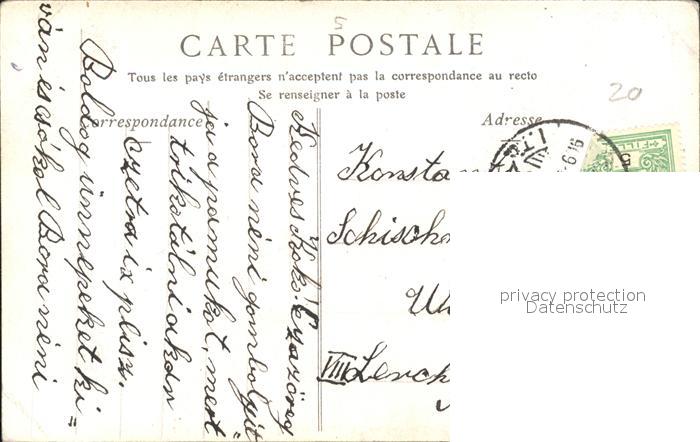 5
CARTE POSTALE
Tous les pays étrangers n'acceptent pas la correspondance au recto
Se renseigner à la poste
20
Correspondance
Adresse
Kedves Koko! Egy az öreg
Bora néni gombolyít=
ja a pamukot, mert
trikotálni akar
Boldog ünnepeket ki=
ván és csókol Bora néni
Konsta
Schisch
VIII Lerch
916
FILL
5
privacy protection
Datenschutz